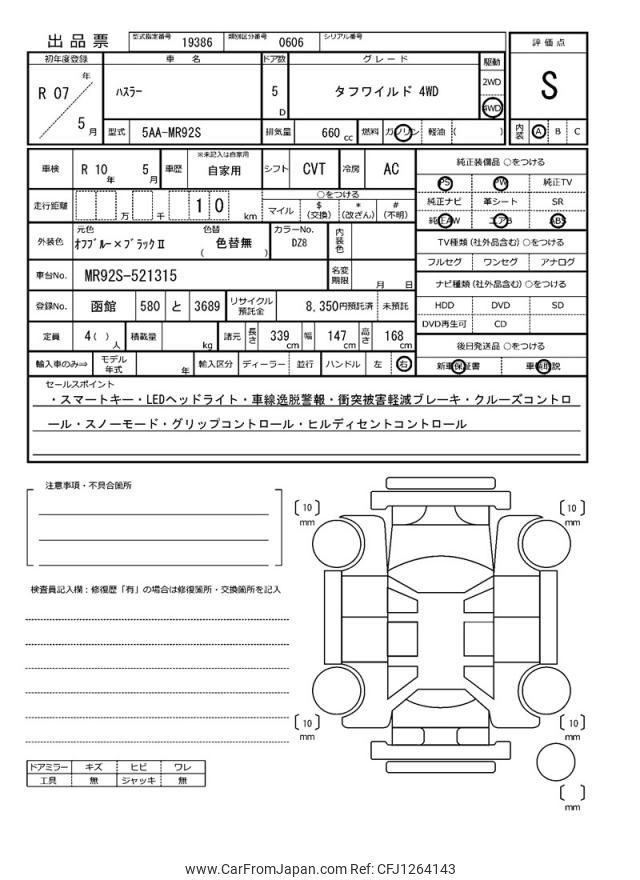 出品票 型式指定番号 19386 類別区分番号 0606 シリアル番号
評価点
S
内装 A B C
初年度登録 車名 ドア数 グレード 駆動
R 07 年 5 月 ハスラー 5 D タフワイルド 4WD 2WD 4WD
型式 5AA-MR92S 排気量 660 cc 燃料 ガソリン 軽油 ( )
車検 R 10 年 5 月 車歴 ※未記入は自家用 自家用 シフト CVT 冷房 AC
走行距離 万 千 1 0 km ○をつける
マイル $(交換) *(改ざん) #(不明)
外装色 元色 オフブルー×ブラックⅡ 色替 ( 色替無 ) カラーNo. DZ8 内装色
車台No. MR92S-521315 名変期限 月 日
登録No. 函館 580 と 3689 リサイクル預託金 8,350円預託済 未預託
定員 4( ) 人 積載量 kg 諸元 長さ 339 cm 幅 147 cm 高さ 168 cm
輸入車のみ⇒ モデル年式 年 輸入区分 ディーラー 並行 ハンドル 左 右
純正装備品 ○をつける
PS PW 純正TV
純正ナビ 革シート SR
純正AW エアB ABS
TV種類(社外品含む)○をつける
フルセグ ワンセグ アナログ
ナビ種類(社外品含む)○をつける
HDD DVD SD
DVD再生可 CD
後日発送品 ○をつける
新車保証書 車輌取説
セールスポイント
・スマートキー・LEDヘッドライト・車線逸脱警報・衝突被害軽減ブレーキ・クルーズコントロ
ール・スノーモード・グリップコントロール・ヒルディセントコントロール
注意事項・不具合箇所
検査員記入欄：修復歴「有」の場合は修復箇所・交換箇所を記入
ドアミラー キズ ヒビ ワレ
工具 無 ジャッキ 無
[ 10 ] mm
[ 10 ] mm
[ 10 ] mm
[ 10 ] mm
[ ] mm
www.CarFromJapan.com Ref: CFJ1264143